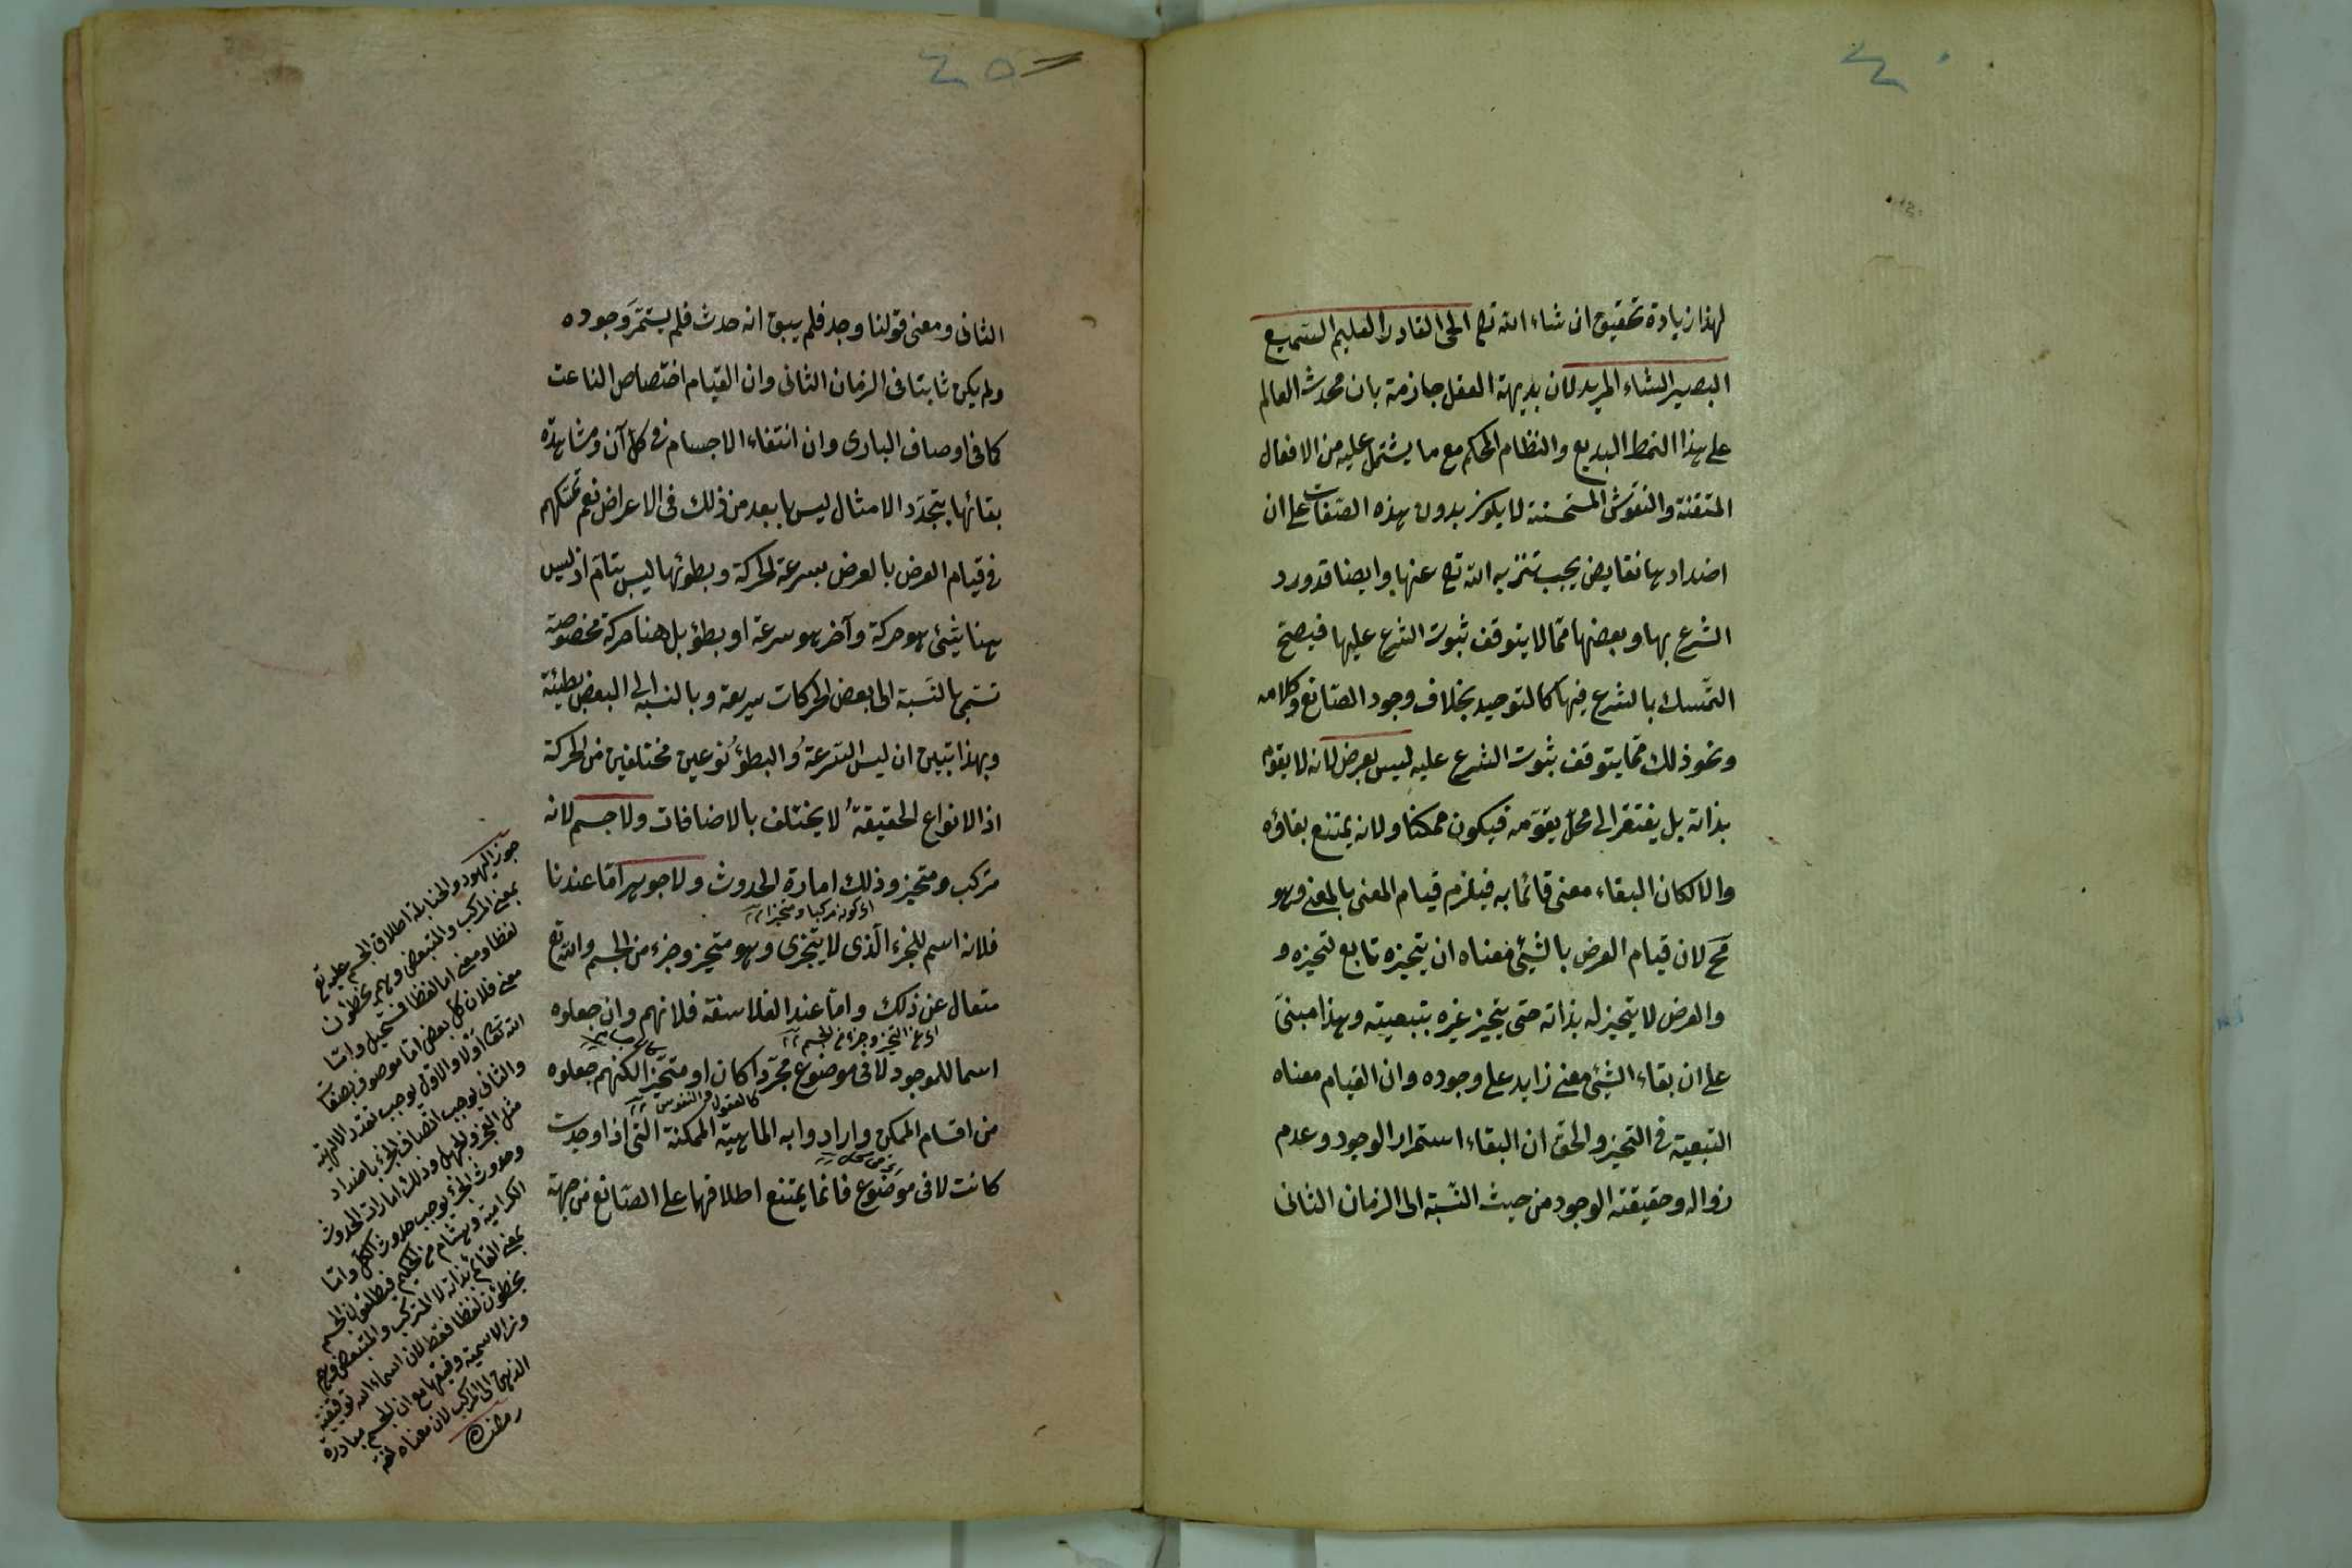 لهذا زيادة تحقيق ان شاء الله تع الحى القادر العليم السميع
البصير الشاء المريد لان بديهة العقل جازمة بان محدث العالم
على هذا النمط البديع والنظام المحكم مع ما يشتمل عليه من الافعال
المتقنة والنقوش المستحسنة لا يكون بدون هذه الصفات على ان
اضدادها نقايض يجب تنزيه الله تع عنها وايضا قد ورد
الشرع بها وبعضها مما لا يتوقف ثبوت الشرع عليها فيصح
التمسك بالشرع فيها كالتوحيد بخلاف وجود الصانع وكلامه
ونحو ذلك مما يتوقف ثبوت الشرع عليه ليس بعرض لانه لا يقوم
بذاته بل يفتقر الى محل يقومه فيكون ممكنا ولانه يمتنع بقاؤه
والا لكان البقاء معنى قائما به فيلزم قيام المعنى بالمعنى وهو
مح لان قيام العرض بالشيئ معناه ان يتحيزه تابع لتحيزه و
والعرض لا يتحيز له بذاته حتى يتحيز غيره بتبعيته وهذا مبنى
على ان بقاء الشيئ معنى زايد على وجوده وان القيام معناه
التبعية فى التحيز والحق ان البقاء استمرار الوجود وعدم
زواله وحقيقته الوجود من حيث النسبة الى الزمان الثانى
الثانى ومعنى قولنا وجد فلم يبق انه حدث فلم يستمر وجوده
ولم يكن ثابتا فى الزمان الثانى وان القيام اختصاص الناعت
كما فى اوصاف البارى وان انتفاء الاجسام فى كل آن ومشاهدة
بقائها بتجدد الامثال ليس بابعد من ذلك فى الاعراض نعم تمسكهم
فى قيام العرض بالعرض بسرعة الحركة وبطوئها ليس بتام اذ ليس
هنا شيئ هو حركة وآخر هو سرعة او بطؤ بل هنا حركة مخصوصة
تسمى بالنسبة الى بعض الحركات سريعة وبالنسبة الى البعض بطيئة
وبهذا تبين ان ليس السرعة والبطؤ نوعين مختلفين من الحركة
اذ الانواع الحقيقة لا يختلف بالاضافات ولا جسم لانه
مركب ومتحيز وذلك امارة الحدوث ولا جوهر اما عندنا
اى كونه مركبا ومتحيزا
فلانه اسم للجزء الذى لا يتجزى وهو متحيز وجزء من الجسم والله تع
متعال عن ذلك واما عند الفلاسفة فلانهم وان جعلوه
اى عن التحيز وجزء من الجسم
اسما للموجود لا فى موضوع مجردا كان او متحيزا لكنهم جعلوه
كالعقول والنفوس
من اقسام الممكن وارادوا به الماهية الممكنة التى اذا وجدت
كانت لا فى موضوع فانما يمتنع اطلاقها على الصانع من جهة
جوز اليهود والحنابلة اطلاق الجسم عليه تع
بمعنى المركب والمتبعض وهم يخطئون
لفظا ومعنى اما لفظا فستجيئ واما
معنى فلان كل بعض اما موصوف بصفات
الله تعالى اولا والاول يوجب تعدد الالهية
والثانى يوجب اتصاف الجزء باضداد
مثل العجز والجهل وذلك امارات الحدوث
وحدوث الجزء يوجب حدوث الكل واما
الكرامية وهشام بن الحكم فيطلقون الجسم
بمعنى القائم بذاته لا المتركب والمتبعض وهم
يخطئون لفظا فقط لان اسماء الله توقيفية
الذهن الى المركب لان معناه لغة
رمضان